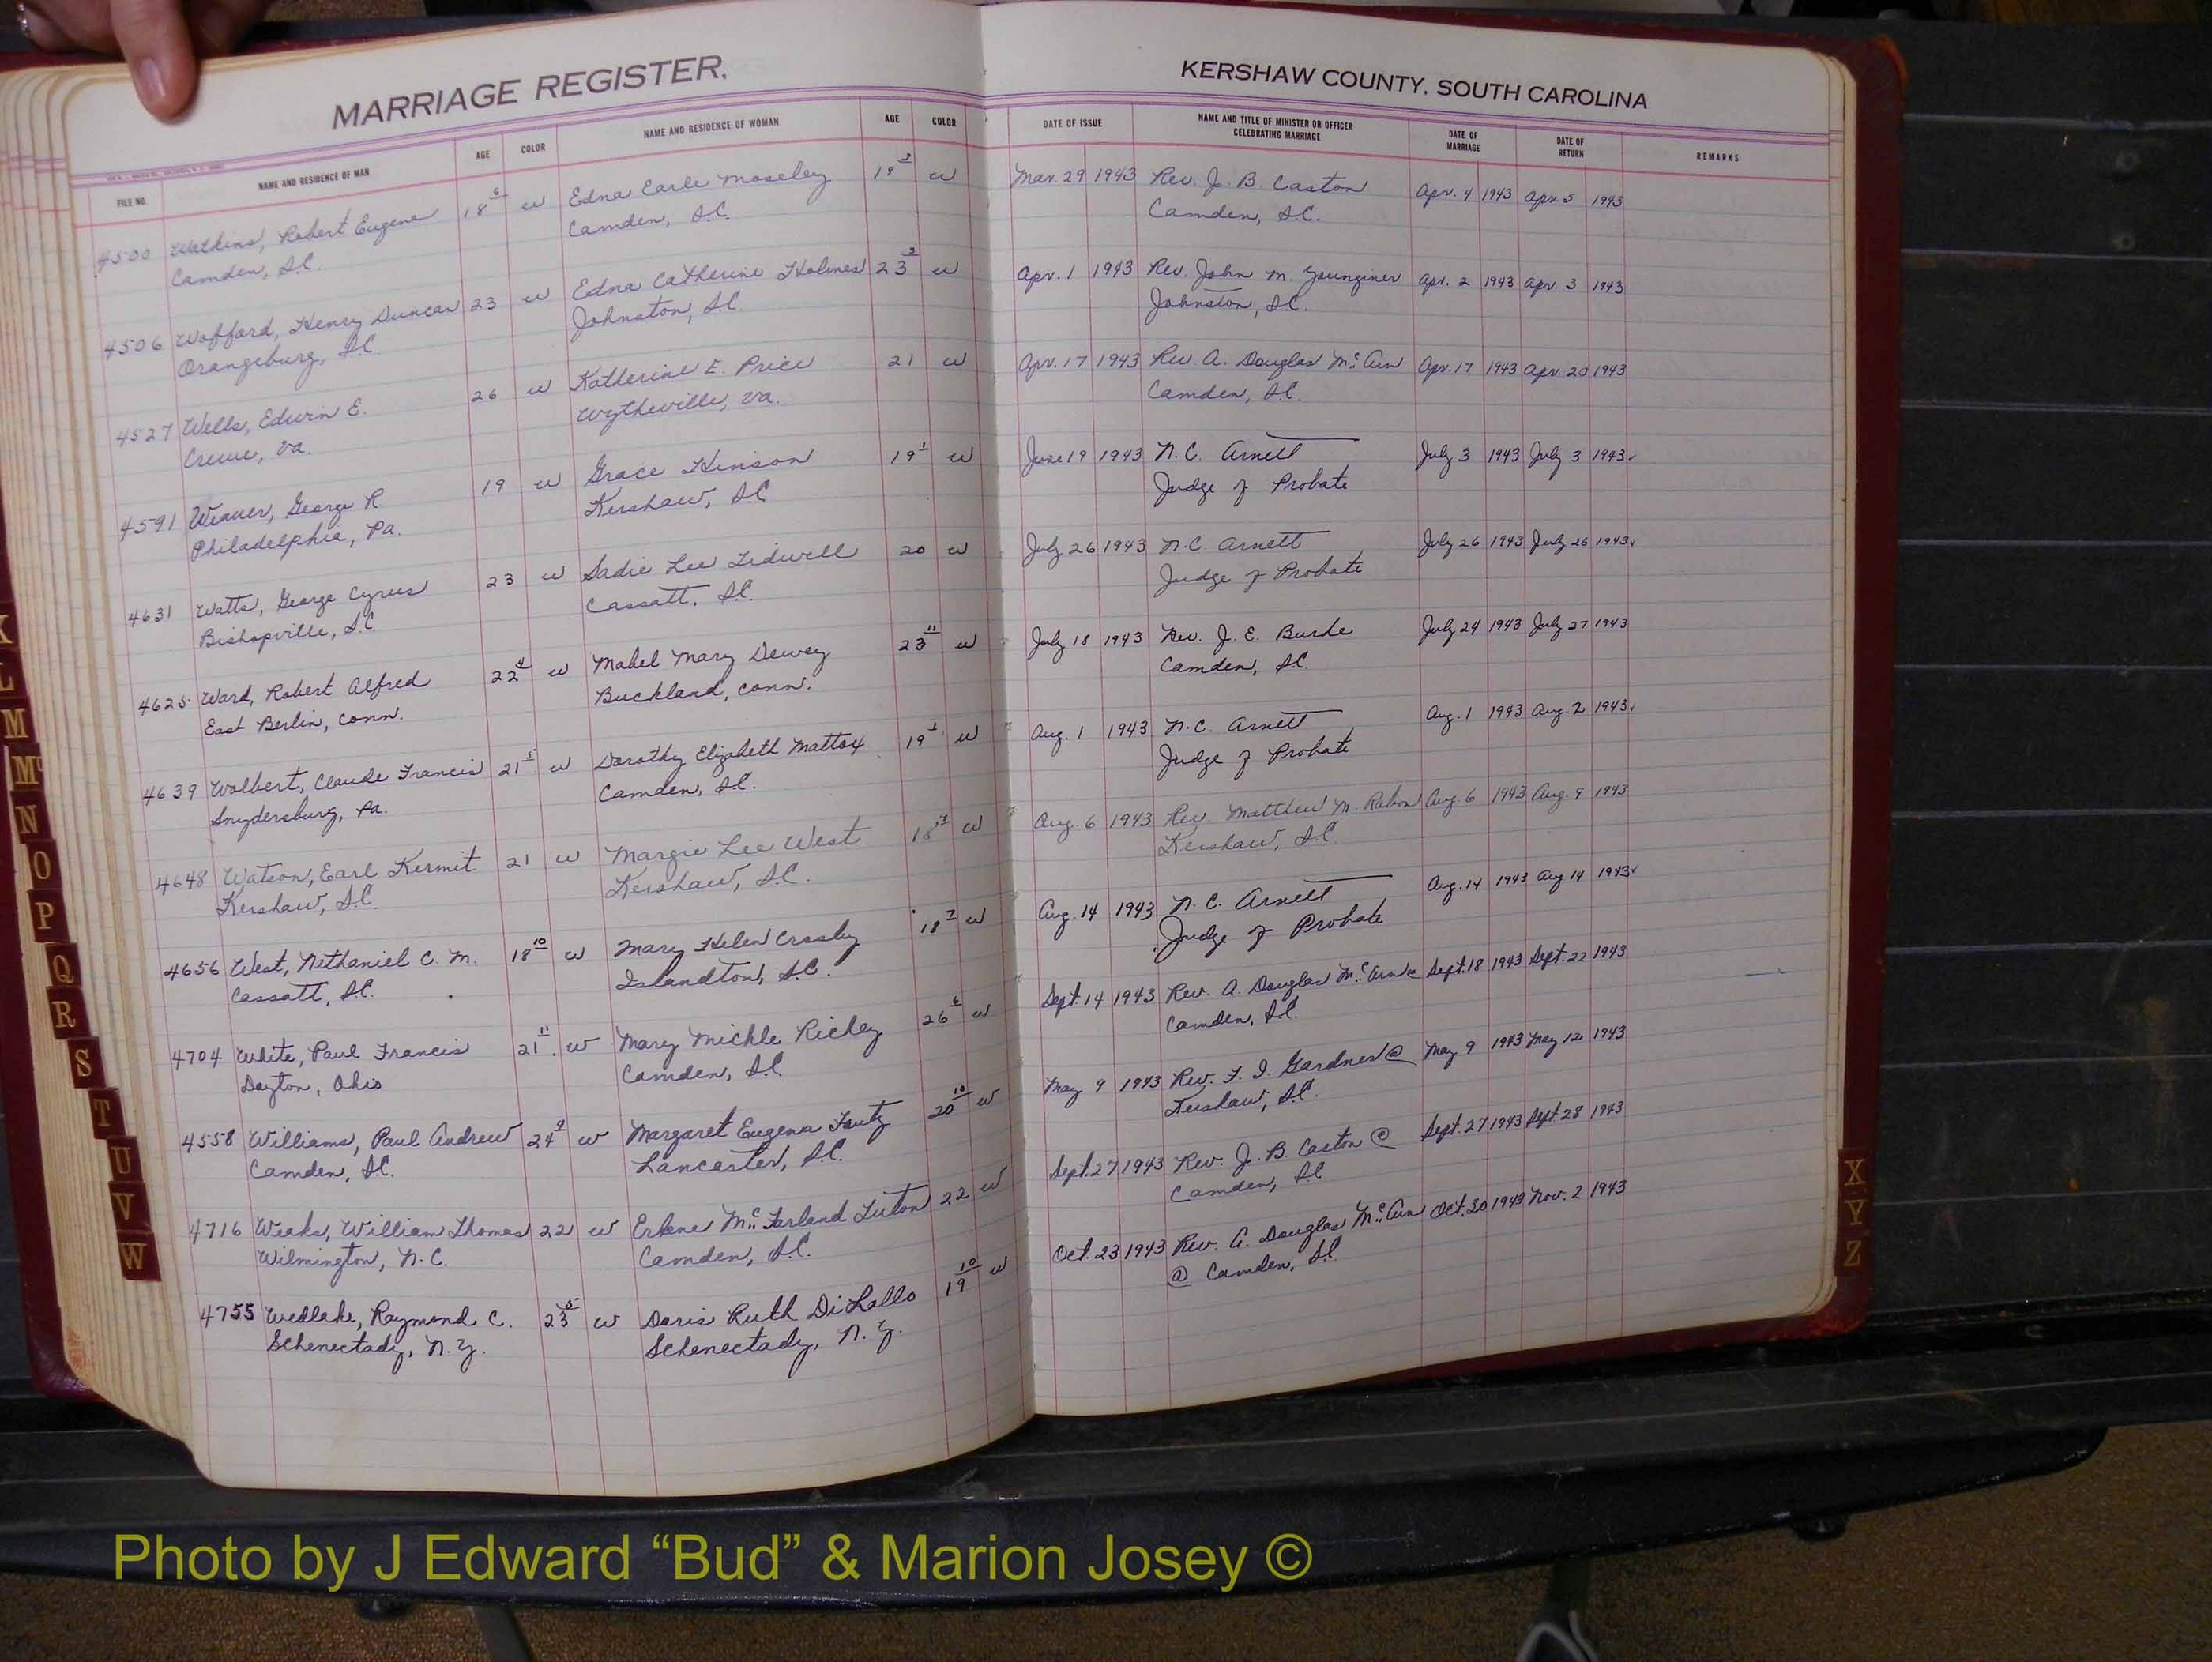 MARRIAGE REGISTER,
KERSHAW COUNTY, SOUTH CAROLINA
FILE NO. NAME AND RESIDENCE OF MAN AGE COLOR NAME AND RESIDENCE OF WOMAN AGE COLOR DATE OF ISSUE NAME AND TITLE OF MINISTER OR OFFICER CELEBRATING MARRIAGE DATE OF MARRIAGE DATE OF RETURN REMARKS
4500 Watkins, Robert Eugene 18 6 w Edna Earle Moseley 19 w Mar. 29 1943 Rev. J. B. Caston Apr. 4 1943 Apr. 5 1943
Camden, S.C. Camden, S.C. Camden, S.C.
4506 Wofford, Henry Duncan 23 w Edna Catherine Holmes 23 3 w Apr. 1 1943 Rev. John M. Younginer Apr. 2 1943 Apr. 3 1943
Orangeburg, S.C. Johnston, S.C. Johnston, S.C.
4527 Wells, Edwin E. 26 w Katherine E. Price 21 w Apr. 17 1943 Rev. A. Douglas McArn Apr. 17 1943 Apr. 20 1943
Crewe, Va. Wytheville, Va. Camden, S.C.
4591 Weaver, George R 19 w Grace Hinson 19 1 w June 19 1943 N.C. Arnett July 3 1943 July 3 1943
Philadelphia, Pa. Kershaw, S.C. Judge of Probate
4631 Watts, George Cyrus 23 w Sadie Lee Tidwell 20 w July 26 1943 N.C. Arnett July 26 1943 July 26 1943
Bishopville, S.C. Cassatt, S.C. Judge of Probate
4625 Ward, Robert Alfred 22 4 w Mabel Mary Dewey 23 11 w July 18 1943 Rev. J. E. July 24 1943 July 27 1943
East Berlin, Conn. Buckland, Conn. Camden, S.C.
4639 Wolbert, Claude Francis 21 5 w Dorothy Elizabeth Mattox 19 1 w Aug. 1 1943 N.C. Arnett Aug. 1 1943 Aug. 2 1943
Snydersburg, Pa. Camden, S.C. Judge of Probate
4648 Watson, Earl Kermit 21 w Margie Lee West 18 w Aug. 6 1943 Rev. Matthew M. Rabon Aug. 6 1943 Aug. 9 1943
Kershaw, S.C. Kershaw, S.C. Kershaw, S.C.
4656 West, Nathaniel C. M. 18 10 w Mary Helen Crosby 18 7 w Aug. 14 1943 N.C. Arnett Aug. 14 1943 Aug 14 1943
Cassatt, S.C. Islandton, S.C. Judge of Probate
4704 White, Paul Francis 21 11 w Mary Mickle Richey 26 6 w Sept. 14 1943 Rev. A. Douglas McArn Sept. 18 1943 Sept. 22 1943
Dayton, Ohio Camden, S.C. Camden, S.C.
4558 Williams, Paul Andrew 24 9 w Margaret Eugena 20 10 w May 9 1943 Rev. F. I. Gardner @ May 9 1943 May 12 1943
Camden, S.C. Lancaster, S.C. Kershaw, S.C.
4716 Weeks, William Thomas 22 w McFarland Luton 22 w Sept. 27 1943 Rev. J. B. Caston @ Sept. 27 1943 Sept. 28 1943
Wilmington, N.C. Camden, S.C. Camden, S.C.
4755 Wedlake, Raymond C. 23 w Doris Ruth DiLallo 19 10 w Oct. 23 1943 Rev. A. Douglas McArn Oct. 30 1943 Nov. 2 1943
Schenectady, N.Y. Schenectady, N.Y. @ Camden, S.C.
L
M
Mc
N
O
P
Q
R
S
T
U
V
W
X
Y
Z
Photo by J Edward “Bud” & Marion Josey ©